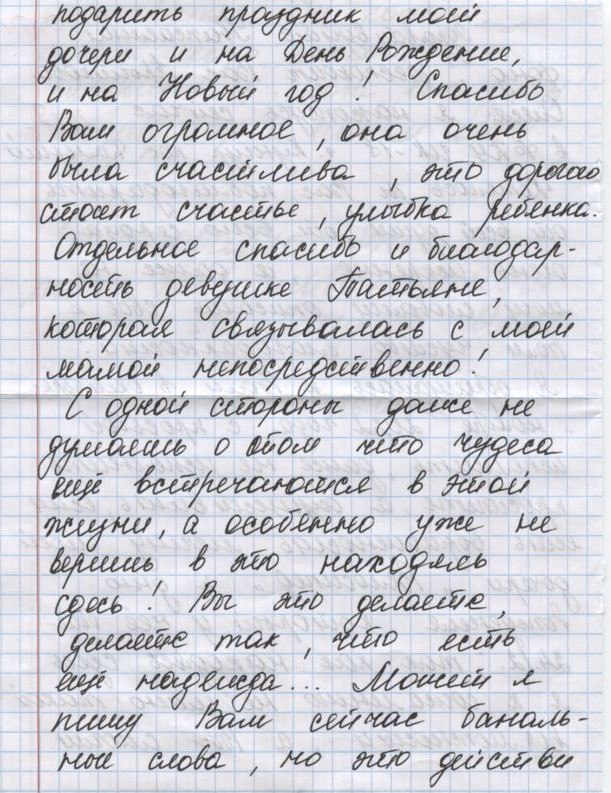 подарить праздник моей
дочери и на День Рождение,
и на Новый год! Спасибо
Вам огромное, она очень
была счастлива, это дорогого
стоит счастье, улыбка ребенка.
Отдельное спасибо и благодар-
ность девушке Татьяне,
которая связывалась с моей
мамой непосредственно!
С одной стороны даже не
думалось о том что чудеса
ещё встречаются в этой
жизни, а особенно уже не
веришь в это находясь
здесь! Вы это делаете,
делаете так, что есть
ещё надежда... Может я
пишу Вам сейчас баналь-
ные слова, но это действи